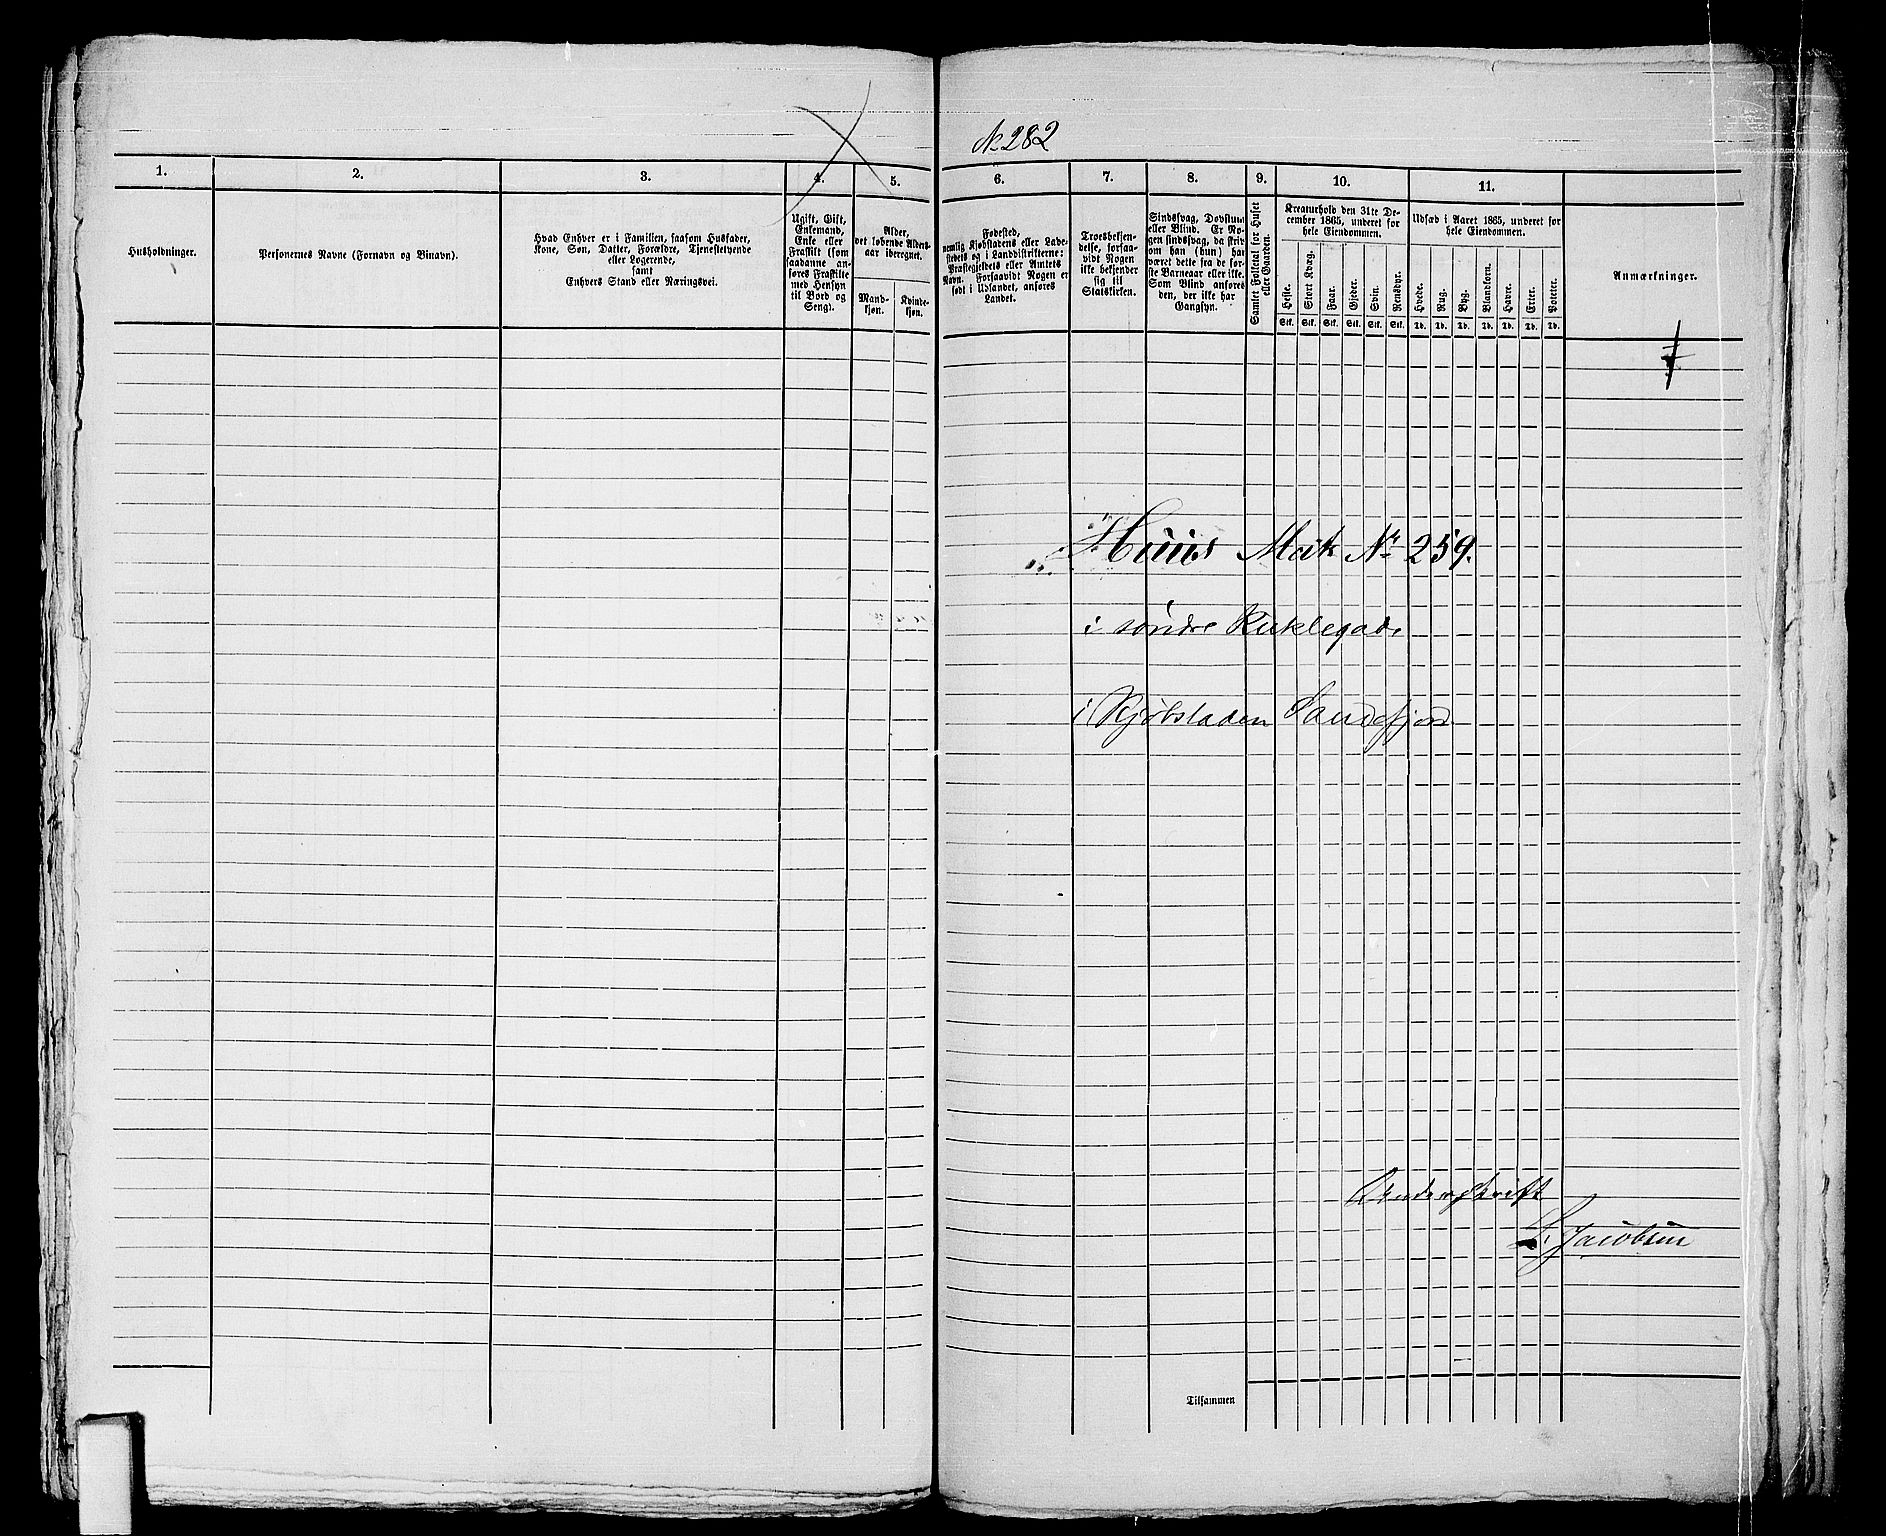 No 282
1.
2.
3.
4.
5.
6.
7.
8.
9.
10.
11.
Husholdninger.
Personernes Navne (Fornavn og Binavn).
Hvad Enhver er i Familien, saasom Husfader,
Kone, Søn, Datter, Forældre, Tjenestetyende
eller Logerende,
samt
Enhvers Stand eller Næringsvei.
Ugift, Gift,
Enkemand,
Enke eller
Fraskilt (som
saadanne an-
føres Fraskilte
med Hensyn
til Bord og
Seng).
Alder,
det løbende Alders-
aar iberegnet.
Mand-
kjøn.
Kvinde-
kjøn.
Fødested,
nemlig Kjøbstadens eller Lade-
stedets og i Landdistrikterne:
Præstegjeldets eller Amtets
Navn. Forsaavidt Nogen er
født i Udlandet, anføres
Landet.
Troesbekjen-
delse, forsaa-
vidt Nogen
ikke bekjender
sig til
Statskirken.
Sindssvag, Døvstum
eller Blind. Er No-
gen sindssvag, da skriv
om han (hun) har
været dette fra de før-
ste Barneaar eller ikke.
Som Blind anføres
den, der ikke har
Gangsyn.
Samlet Folketal for Huset
eller Gaarden.
Kreaturhold den 31te De-
cember 1865, underet for
hele Eiendommen.
Heste.
Stort Kvæg.
Faar.
Gjeder.
Svin.
Rensdyr.
Stk. Stk. Stk. Stk. Stk. Stk.
Udsæd i Aaret 1865, underet for
hele Eiendommen.
Hvede.
Rug.
Byg.
Blandkorn.
Havre.
Erter.
Poteter.
Td. Td. Td. Td. Td. Td. Td.
Anmærkninger.
Huus Mat No 259.
i søndre
i Kjøbstaden Sandefjord
Underskrift
L. Jacobsen
Tilsammen